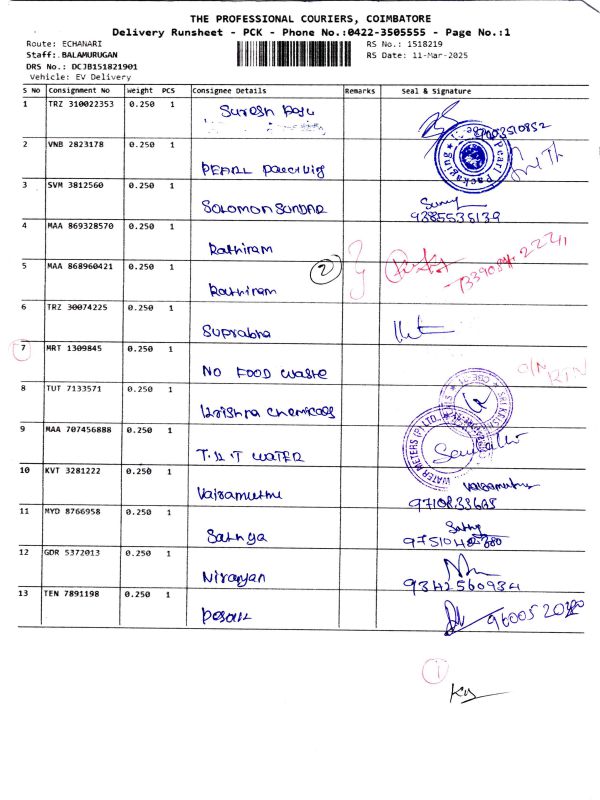 THE PROFESSIONAL COURIERS, COIMBATORE
Delivery Runsheet - PCK - Phone No.:0422-3505555 - Page No.:1
Route: ECHANARI RS No.: 1518219
Staff:.BALAMURUGAN RS Date: 11-Mar-2025
DRS No.: DCJB151821901
Vehicle: EV Delivery
S No Consignment No Weight PCS Consignee Details Remarks Seal & Signature
1 TRZ 310022353 0.250 1
Suresh
2 VNB 2823178 0.250 1 Pearl Packaging
PEARL
3 SVM 3812560 0.250 1
SOLOMON SUNDAR 9385535139
4 MAA 869328570 0.250 1
Rathiram
5 MAA 868960421 0.250 1 2
Rathiram
6 TRZ 30074225 0.250 1
Suprabha
7 MRT 1309845 0.250 1
NO FOOD waste
8 TUT 7133571 0.250 1
Krishna chemicals
9 MAA 707456888 0.250 1 WATER METERS (P) LTD.
WATER
10 KVT 3281222 0.250 1
Vairamuthu
11 MYD 8766958 0.250 1
Sathya
12 GDR 5372013 0.250 1
9342560934
13 TEN 7891198 0.250 1
1